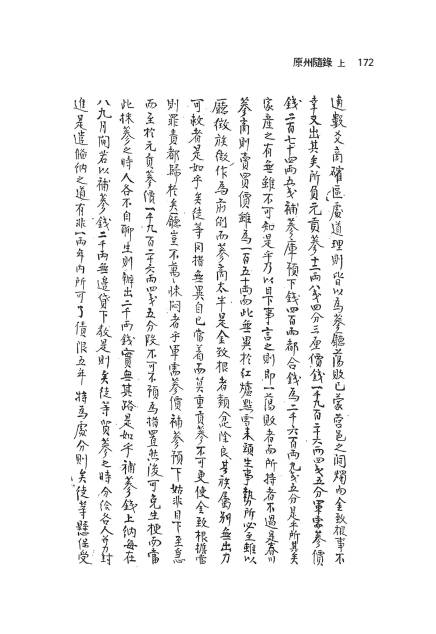 原州隨錄 上 172
適數爻商確區處道理則皆以爲蔘廳蕩敗已蒙營邑之洞燭而全致根事不
幸又出其矣所負元貢蔘十二兩八戔四分三厘價錢一千九百二十六兩四戔五分軍需蔘價
錢二百七十四兩五戔補蔘庫預下錢四百兩都合錢爲二千六百兩九戔五分是乎所其矣
家產之有無雖不可知是乎乃以目下事言之則即一蕩敗者而所持者不過是春川
蔘商則賣買價雖爲一百五十兩而此無異於紅爐點雪末頭生事勢所必至雖以
廳徵族徵作爲前例而蔘商太半是全致根者類兺除良其族屬別無出力
可救者是如乎矣徒等罔措無異自己當着而莫重貢蔘不可更使全致根擔當
則罪責都歸於矣廳豈不萬悚悶者乎軍需蔘價補蔘預下姑非目下至急
而至於元貢蔘價一千九百二十六兩四戔五分段不可不預爲措置然後可免生梗而當
此採蔘之時人各不自聊生則辦出二千兩錢實無其路是如乎補蔘錢上納每在
八九月間若以補蔘錢二千兩無邊貸下教是則矣徒等貿蔘之時分給各人並力封
進是遣備納之道有非一兩年內所可了債限五年特爲處分則矣徒等懸保受